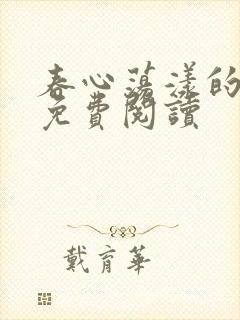 春心荡漾的
免費閱讀
戴育華